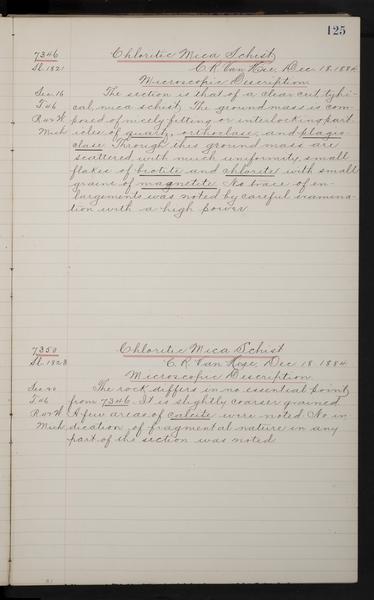 125
7346 Chloritic Mica Schist
Sl. 1821 C. R. Van Hise, Dec. 18. 1884.
Microscopic Description
Sec. 16 The section is that of a clear cut typi-
T. 46 cal, mica schist. The ground mass is com-
posed of nicely fitting or interlocking part-
Mich icles of quartz, orthoclase, and plagio-
clase. Through this ground mass are
scattered with much uniformity, small
flakes of biotite and chlorite with small
grains of magnetite. No trace of en-
largements was noted by careful examina-
tion with a high power
7350 Chloritic Mica Schist
Sl. 1823 C. R. Van Hise, Dec 18 1884
Microscopic Description.
Sec. 20 The rock differs in no essential point,
T. 46 from 7346. It is slightly coarser grained
A few areas of calcite were noted. No in
Mich dication of fragmental nature in any
part of the section was noted